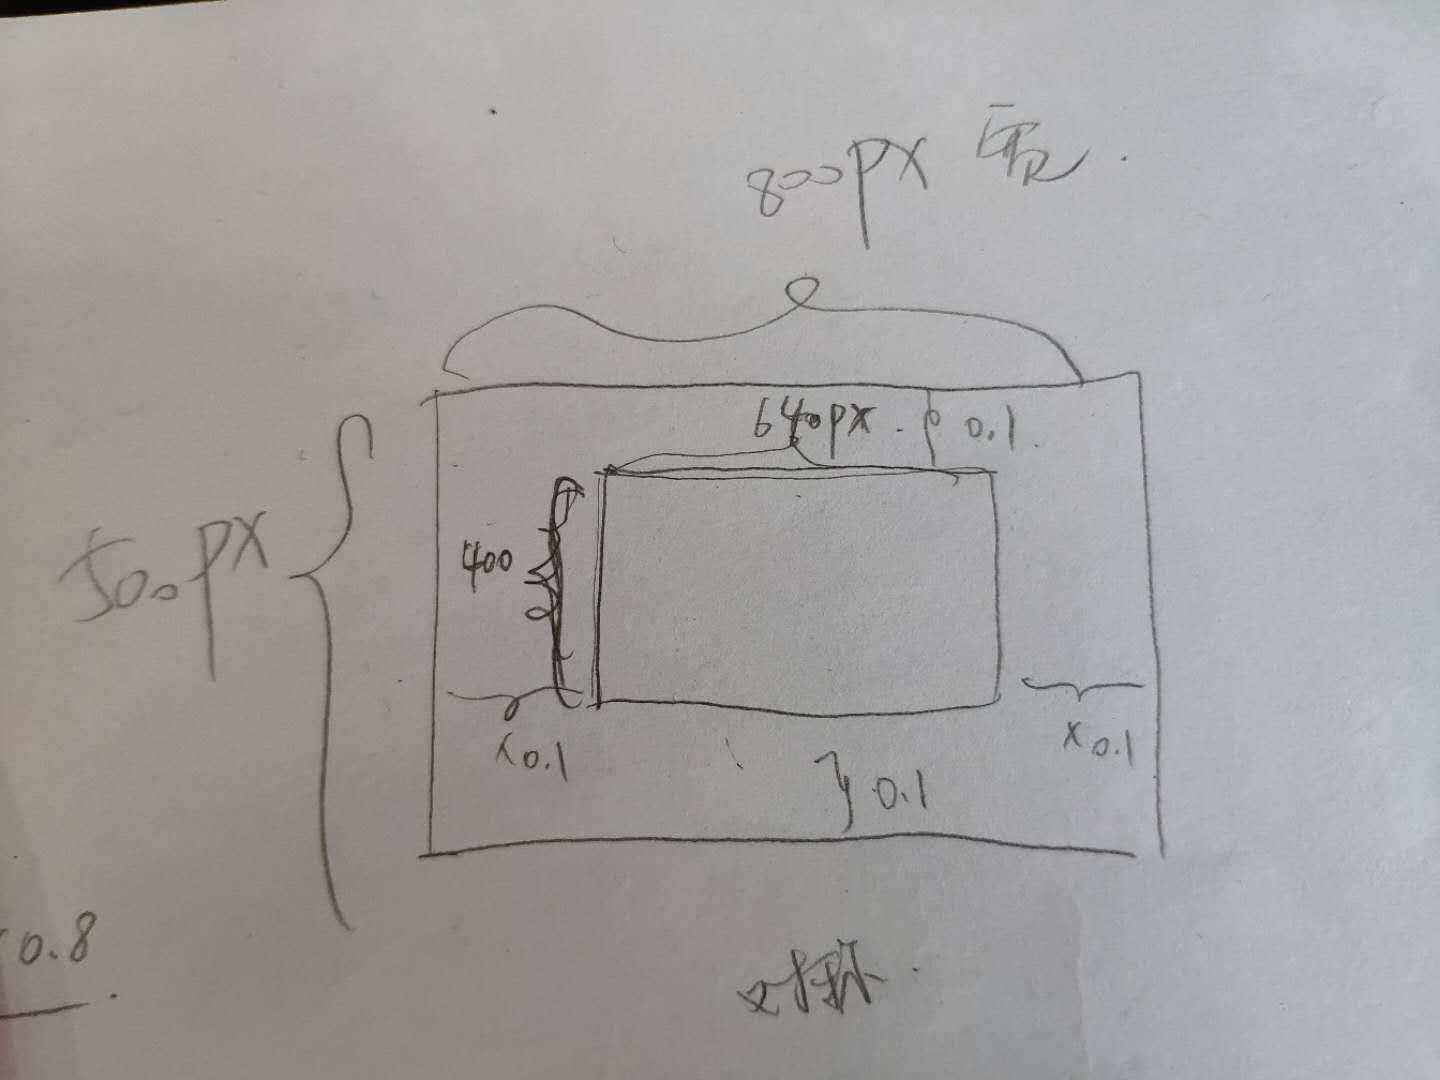 800px
640px.
0.1.
500px
400
x0.1
x0.1
0.1
0.8